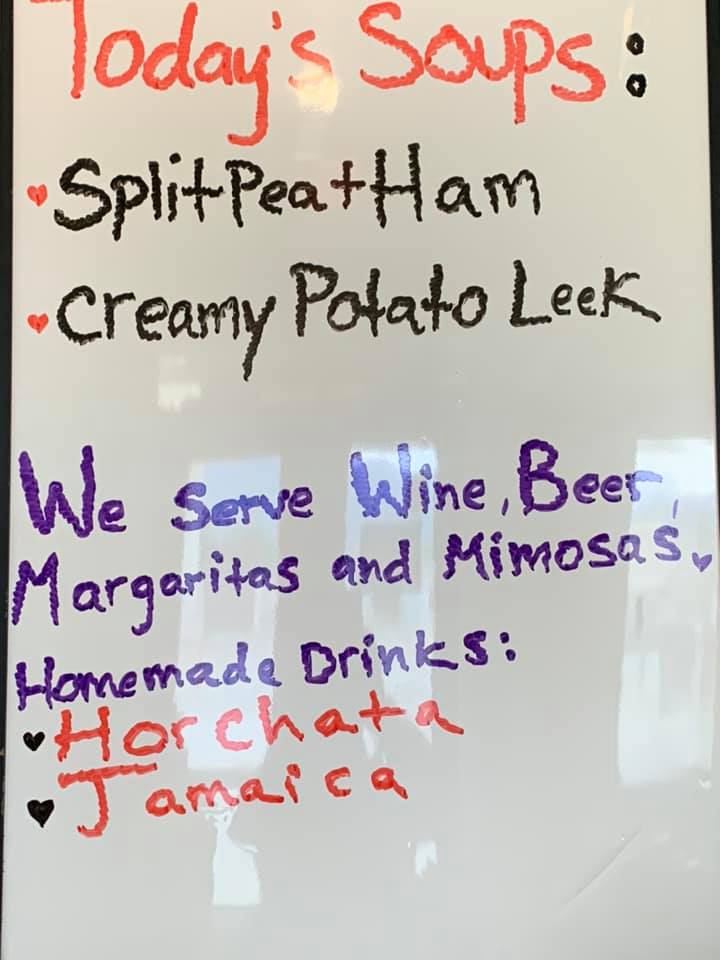 Today's Soups:
Split Pea + Ham
Creamy Potato Leek
We Serve Wine, Beer,
Margaritas and Mimosas.
Homemade Drinks:
Horchata
Jamaica